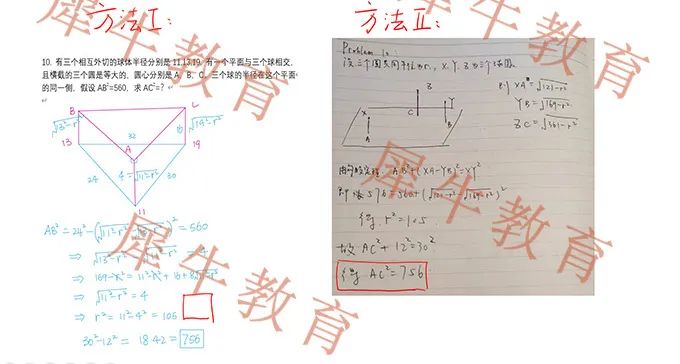 方法I:
10. 有三个相互外切的球体半径分别是 11,13,19. 有一个平面与三个球相交,
且横截的三个圆是等大的, 圆心分别是 A、B、C, 三个球的半径在这个平面
的同一侧, 假设 AB²=560, 求 AC²=?
B
L
√13²-r²
32
√19²-r²
13
A
19
24
4=√11²-r²
30
11
AB² = 24² - (√11²-r² - √13²-r²)² = 560
⇒ √13²-r² - √11²-r² = 4
⇒ 169-r² = 11²-r² + 16 + 8√11²-r²
⇒ √11²-r² = 4
⇒ r² = 11²-4² = 105
30²-12² = 18·42 = 756
方法II:
Problem 10:
设三个圆共同半径为r, X、Y、Z为三个球圆
则 XA = √121-r²
YB = √169-r²
ZC = √361-r²
X
A
Z
C
Y
B
由勾股定理: AB²+(XA-YB)²=XY²
即 576=560+(√121-r²-√169-r²)²
得 r²=105
故 AC²+12²=30²
得 AC²=756
犀牛教育
犀牛教育
犀牛教育
犀牛教育